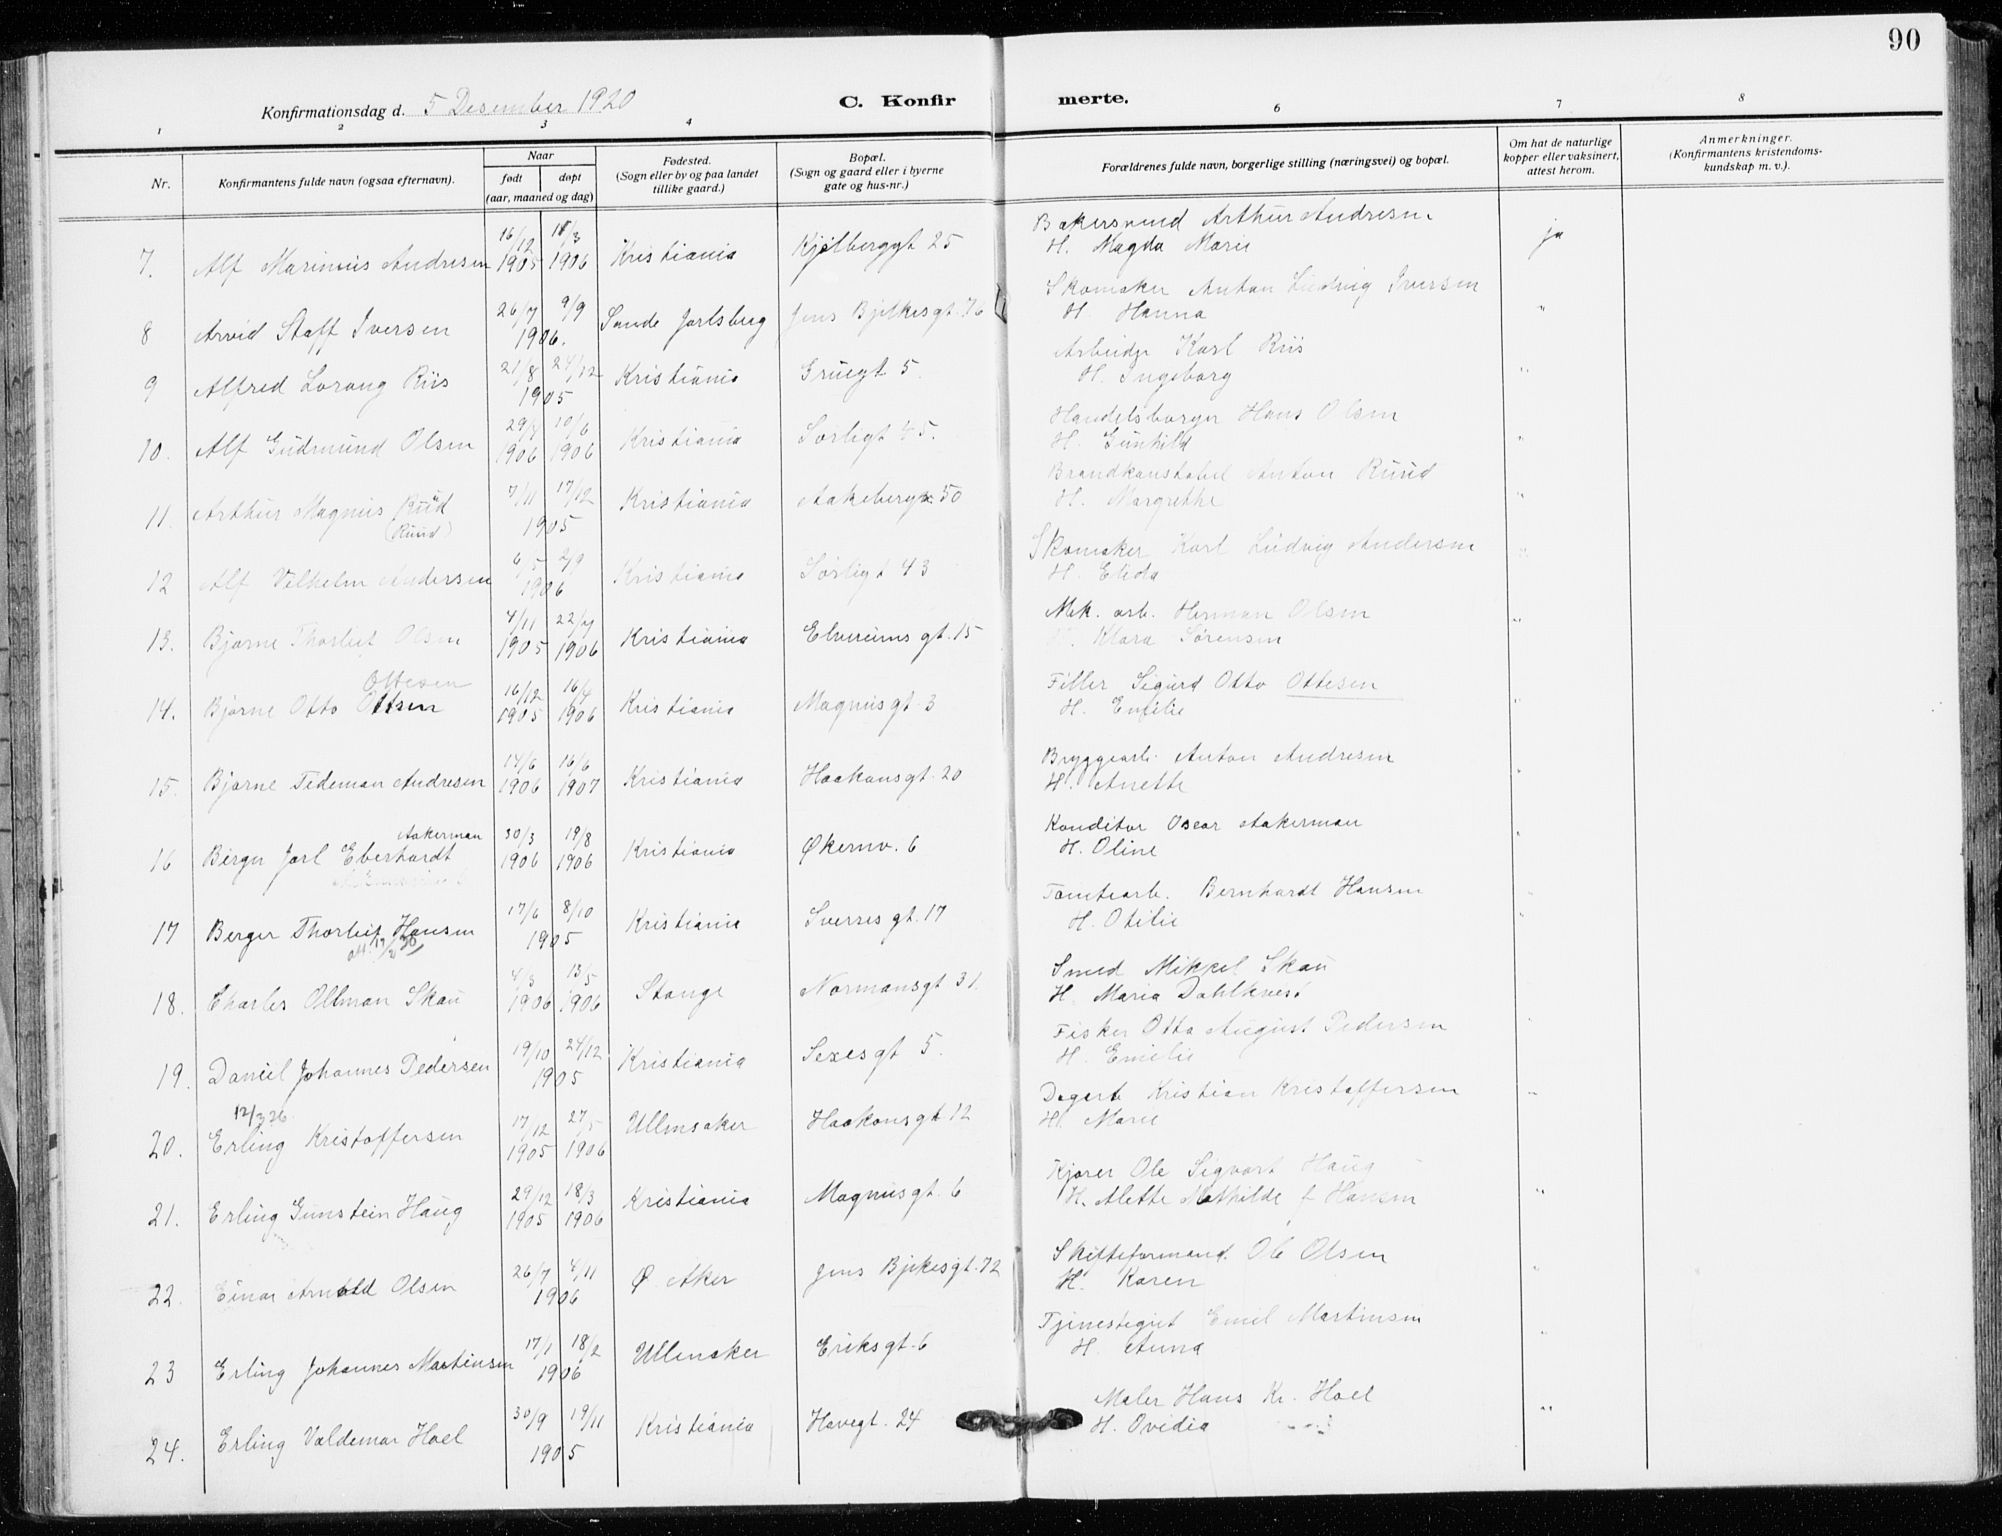 90
Konfirmationsdag d. 5 Desember 1920 C. Konfirmerte.
1 2 3 4 6 7 8
Nr. Konfirmantens fulde navn (ogsaa efternavn). Naar født døpt (aar, maaned og dag) Fødested. (Sogn eller by og paa landet tillike gaard.) Bopæl. (Sogn og gaard eller i byerne gate og hus-nr.) Forældrenes fulde navn, borgerlige stilling (næringsvei) og bopæl. Om hat de naturlige kopper eller vaksinert, attest herom. Anmerkninger. (Konfirmantens kristendomskundskap m. v.).
7. Alf Marinius Andresen 16/12 1905 18/3 1906 Kristiania Kjølberggt 25 Bakersvend Arthur Andresen H. Magda Marie ja
8 Arvid Staff Iversen 26/7 9/9 1906. Sande Jarlsberg Jens Bjelkesgt. 76 Skomaker Anton Ludvig Iversen H Hanna "
9 Alfred Lorang Riis 21/8 24/12 1905 Kristiania Gruegt 5 Arbeider Karl Riis H. Ingeborg "
10. Alf Gudmund Olsen 1906 10/6 1906 Kristiania Sørligt 45. Handelsborger Hans Olsen H. Gunhild "
11. Arthur Magnus Ruud (Ruud) 7/11 17/12 1905 Kristiania Aakebergv. 50 Brandkonstabel Anton Ruud H. Margrethe "
12 Alf Vilhelm Andersen 6/5 2/9 1906 Kristiania Sørligt 43 Skomaker Karl Ludvig Andersen H. Elida "
13. Bjarne Thorleif Olsen 4/11 1905 1906 Kristiania Elverums gt. 15 Mek. arb. Herman Olsen H. Klara Sørensen "
14. Bjarne Otto Ottsen Ottesen 16/12 1905 16/4 1906 Kristiania Magnusgt. 3 Filler Sigurd Otto Ottesen H. Emilie "
15. Bjarne Tedeman Andresen 14/6 1906 16/6 1907 Kristiania Haakonsgt. 20 Bryggearb. Anton Andresen H. Anette "
16 Birger Jarl Eberhardt Aakerman 30/3 1906 19/8 1906 Kristiania Økernv. 6 Konditor Oscar Aakerman H. Oline "
17 Berger Thorleif Hansen 17/6 8/10 1905 Kristiania Sverres gt. 17 Tomtearb. Bernhardt Hansen H. Otilie "
18. Charles Ollman Skau 4/3 1906 13/5 1906 Stange Normansgt 31. Smed Mikkel Skau H. Maria Dahlkvest
19. Daniel Johannes Pedersen 19/10 24/12 1905 Kristiania Sexesgt 5. Fisker Otto August Pedersen H. Emilie
12/3 26
20. Erling Kristoffersen 17/12 1905 27/5 1906 Ullensaker Haakonsgt 12 Kristian Kristoffersen H. Marie "
21. Erling Gunstein Haug 29/12 1905 18/3 1906 Kristiania Magnusgt. 6 Kjører Ole Sigvart Haug H. Alette Mathilde f Hansen "
22. Einar Arnold Olsen 26/7 4/11 1906 Ø. Aker Jens Bjelkesgt. 72 Skifteformand. Ole Olsen H. Karen "
23 Erling Johannes Martinsen 17/1 18/2 1906 Ullensaker Eriksgt. 6 Emil Martinsen H. Anna "
24. Erling Valdemar Hoel 30/9 19/11 1905 Kristiania Havegt. 24 Maler Hans Kr. Hoel H. Ovidia "